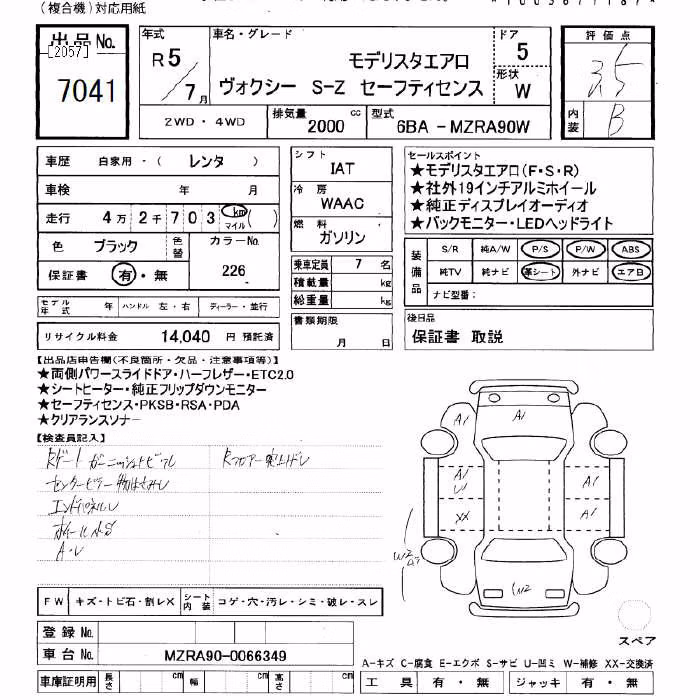 (複合機)対応用紙
出品No. [2057] 7041
年式 R5/7月
車名・グレード モデリスタエアロ
ヴォクシー S-Z セーフティセンス
ドア 5
形状 W
評価点 3.5
内装 B
2WD・4WD
排気量 2000 cc
型式 6BA-MZRA90W
車歴 自家用・( レンタ )
車検 年 月
走行 4万2千703 km マイル ( )
色 ブラック 色替 カラーNo. 226
保証書 有・無
モデル年式 年 ハンドル 左・右 ディーラー・並行
リサイクル料金 14,040 円 預託済
シフト IAT
冷房 WAAC
燃料 ガソリン
乗車定員 7 名
積載量 kg
総重量 kg
書類期限 月 日
セールスポイント
★モデリスタエアロ(F・S・R)
★社外19インチアルミホイール
★純正ディスプレイオーディオ
★バックモニター・LEDヘッドライト
装備品 S/R 純A/W P/S P/W ABS
純TV 純ナビ 革シート 外ナビ エアB
ナビ型番:
後日品
保証書 取説
【出品店申告欄(不良箇所・欠品・注意事項等)】
★両側パワースライドドア・ハーフレザー・ETC2.0
★シートヒーター・純正フリップダウンモニター
★セーフティセンス・PKSB・RSA・PDA
★クリアランスソナー
【検査員記入】
エンドパネルU
A・U
A1
A1
A1
U1
A1
XX
A1
W2
W2
FW キズ・トビ石・割レX シート内装 コゲ・穴・汚レ・シミ・破レ・スレ
登録No.
車台No. MZRA90-0066349
車庫証明用 長さ cm 幅 cm 高さ cm
スペア
A-キズ C-腐食 E-エクボ S-サビ U-凹ミ W-補修 XX-交換済
工具 有・無 ジャッキ 有・無